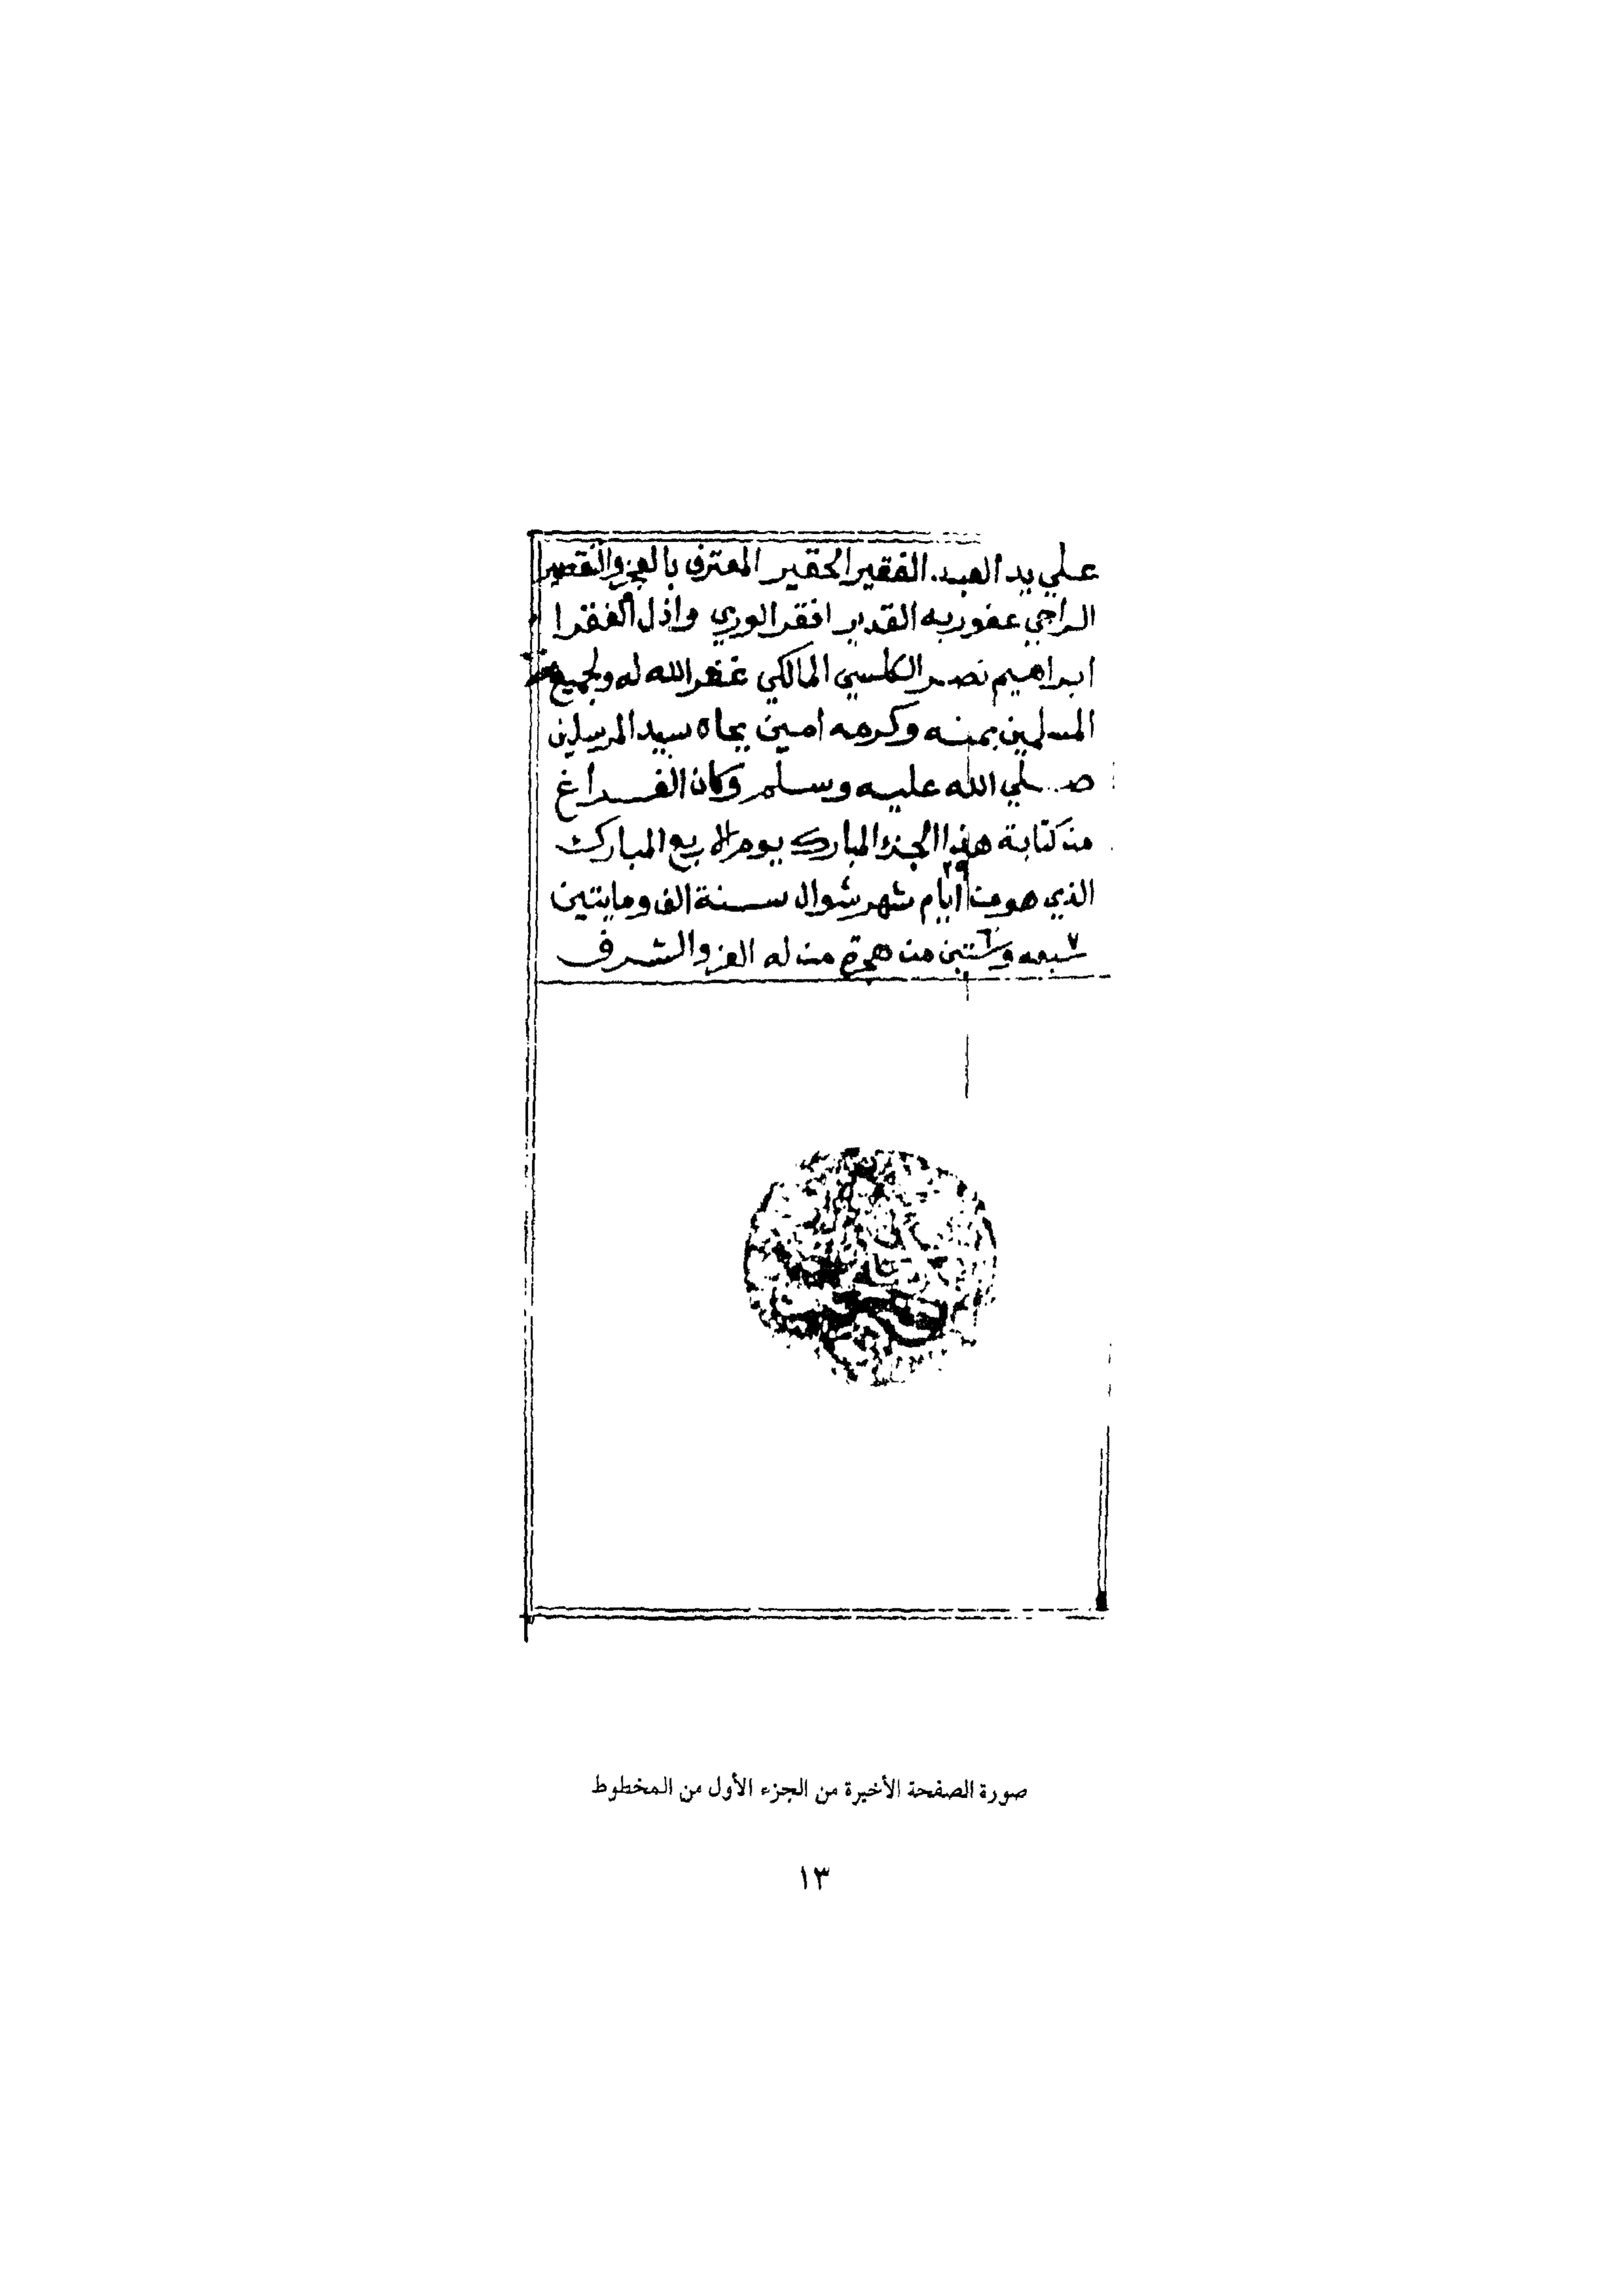 علي يد العبد الفقير الحقير المعترف بالعجز والتقصير
الراجي عفو ربه القدير افقر الوري واذل الفقرا
ابراهيم نصر الكلسي المالكي غفر الله له ولجميع
المسلمين بمنه وكرمه امين بجاه سيد المرسلين
صلي الله عليه وسلم وكان الفراغ
من كتابة هذا الجزء المبارك يوم الاربع المبارك
الذي هو من ٢٩ ايام شهر شوال سنة الف ومايتين
٧ ٦
سبعه وستين من هجرة من له العز والشرف
صورة الصفحة الأخيرة من الجزء الأول من المخطوط
١٣